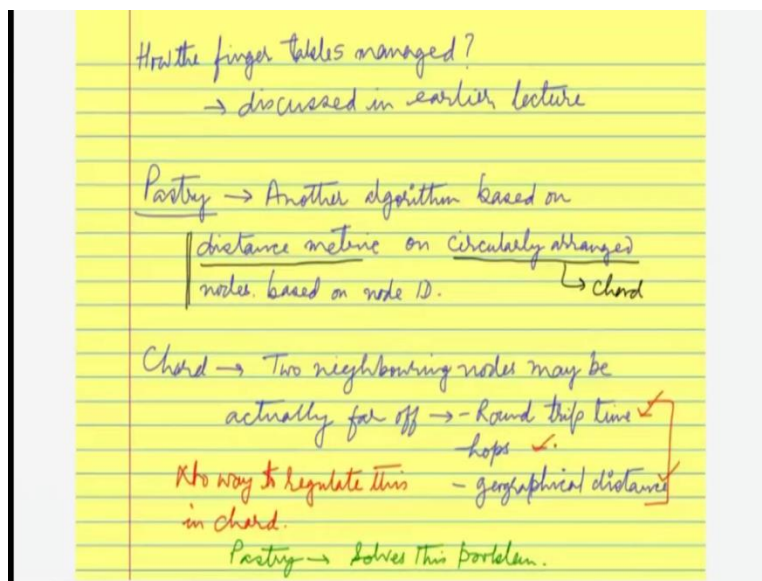 How the finger tables managed?
→ discussed in earlier lecture
Pastry → Another algorithm based on
distance metric on circularly arranged
nodes. based on node ID.
↳ chord
Chord → Two neighbouring nodes may be
actually far off → - Round trip time ✓
- hops ✓.
- geographical distance ✓
No way to regulate this
in chord.
Pastry → Solves this porblem.